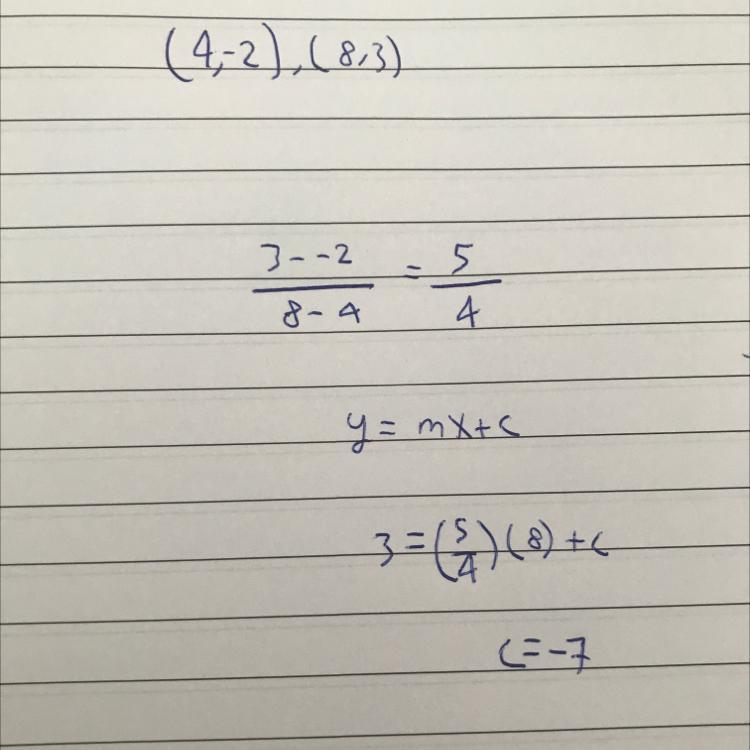 (4,-2),(8,3)
3--2 / 8-4 = 5 / 4
y = mx+c
3=(5/4)(8)+c
c=-7